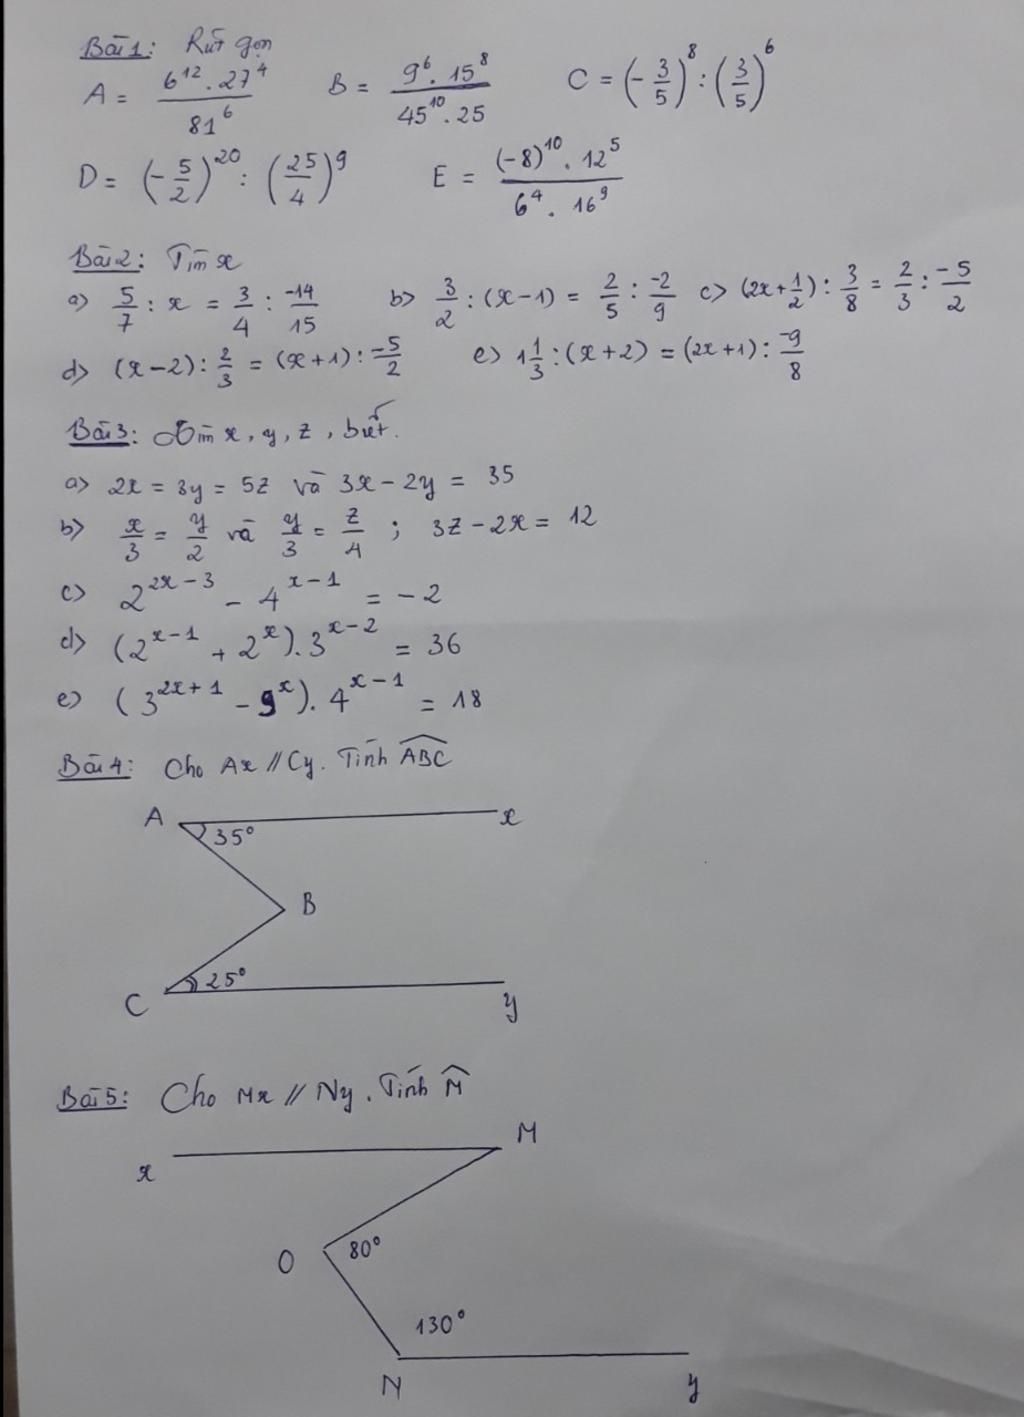 Bài 1: Rút gọn
A = \frac{6^{12} . 27^4}{81^6} B = \frac{9^6 . 15^8}{45^{10} . 25} C = (-\frac{3}{5})^8 : (\frac{3}{5})^6
D = (-\frac{5}{2})^{20} : (\frac{25}{4})^9 E = \frac{(-8)^{10} . 12^5}{6^4 . 16^9}
Bài 2: Tìm x
a) \frac{5}{7} : x = \frac{3}{4} : \frac{-14}{15} b) \frac{3}{2} : (x-1) = \frac{2}{5} : \frac{-2}{9} c) (2x+\frac{1}{2}) : \frac{3}{8} = \frac{2}{3} : \frac{-5}{2}
d) (x-2) : \frac{2}{3} = (x+1) : \frac{-5}{2} e) 1\frac{1}{3} : (x+2) = (2x+1) : \frac{-9}{8}
Bài 3: Tìm x, y, z, biết.
a) 2x = 3y = 5z và 3x - 2y = 35
b) \frac{x}{3} = \frac{y}{2} và \frac{y}{3} = \frac{z}{4} ; 3z - 2x = 12
c) 2^{2x-3} - 4^{x-1} = -2
d) (2^{x-1} + 2^x) . 3^{x-2} = 36
e) (3^{2x+1} - 9^x) . 4^{x-1} = 18
Bài 4: Cho Ax // Cy. Tính \widehat{ABC}
A x
35°
B
25°
C y
Bài 5: Cho Mx // Ny. Tính \widehat{M}
M
x
O 80°
130°
N y